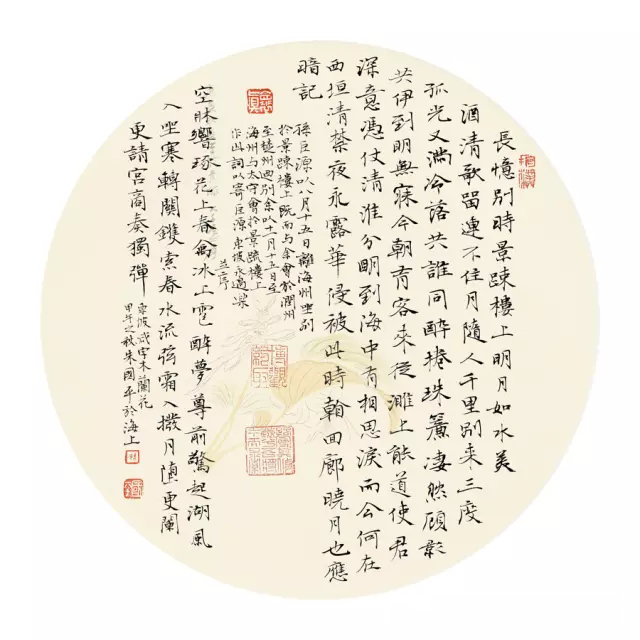 長憶別時景踈樓上明月如水美
酒清歌留連不住月隨人千里別來三度
孤光又滿冷落共誰同醉捲珠簾凄然顧影
共伊到明無寐今朝有客來從濉上能道使君
深意憑仗清淮分明到海中有相思淚而今何在
西垣清禁夜永露華侵被此時翰回廊曉月也應
暗記
孫巨源以八月十五日離海州坐別
於景踈樓上既而與余會於潤州
至楚州廼別余以十一月十五日至
海州與太守會於景疏樓上
作此詞以寄巨源東坡永遇樂
並序
空牀響琢花上春禽冰上雹醉夢尊前驚起湖風
入坐寒轉關鑊索春水流弦霜入撥月墮更闌
更請宮商奏獨彈
東坡減字木蘭花
甲午之秋朱國平於海上